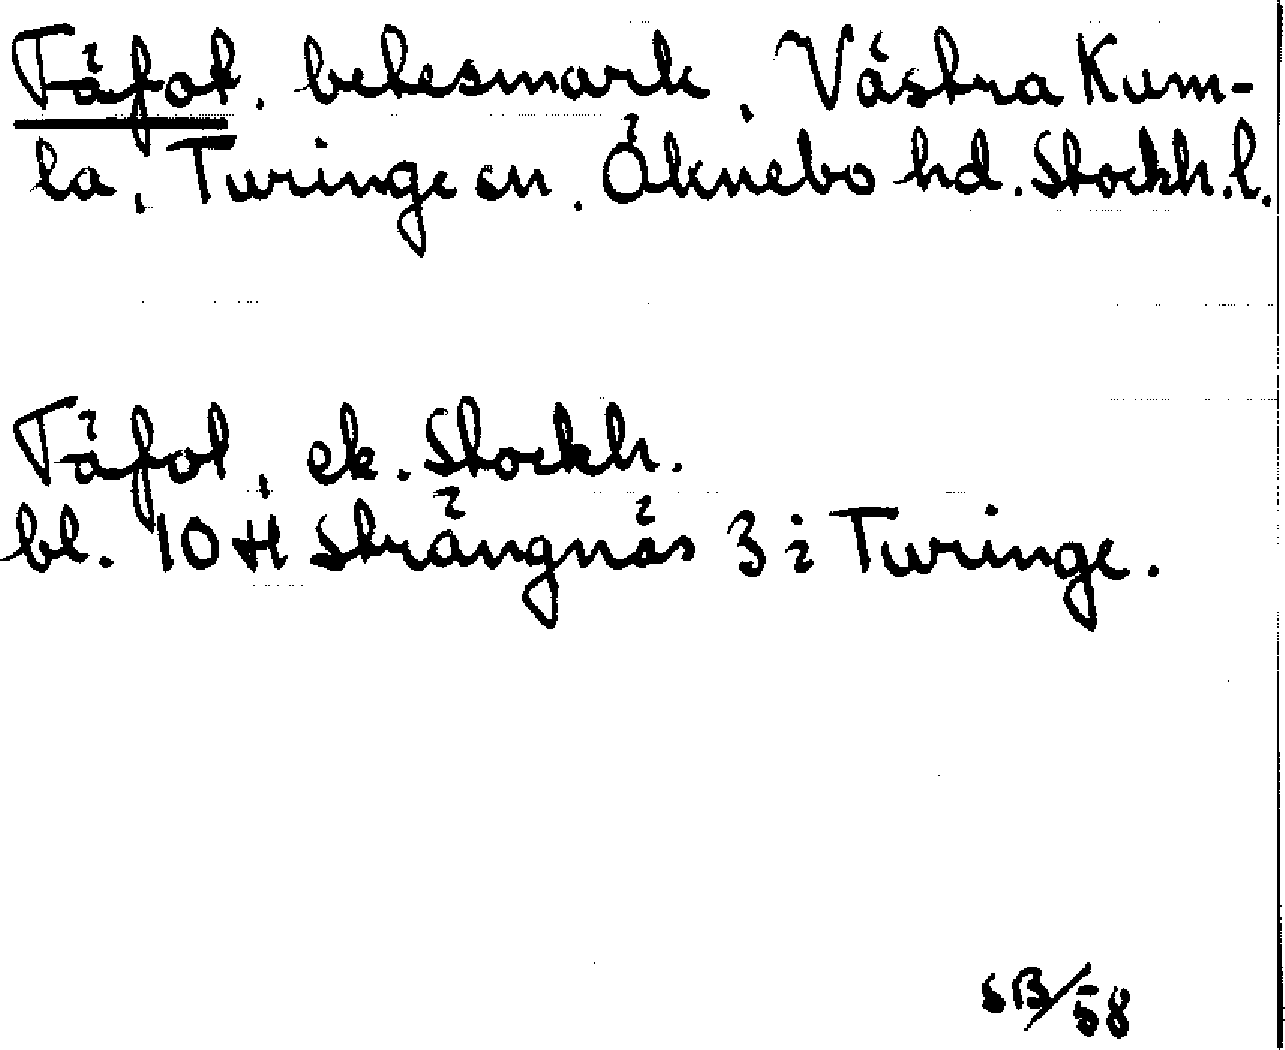 Täfot, betesmark, Västra Kum-
la, Turinge sn, Öknebo hd. Stockh. l.
Täfot, ek. Stockh.
bl. 10 H Strängnäs 3 i Turinge.
SB/58